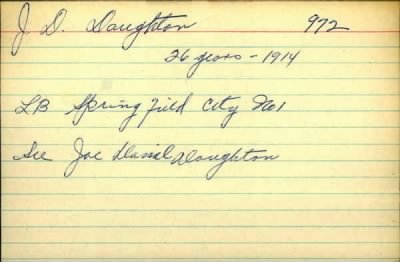 J. D. Daughton 972
26 years - 1914
LB Springfield City No 1
See Joe Daniel Daughton